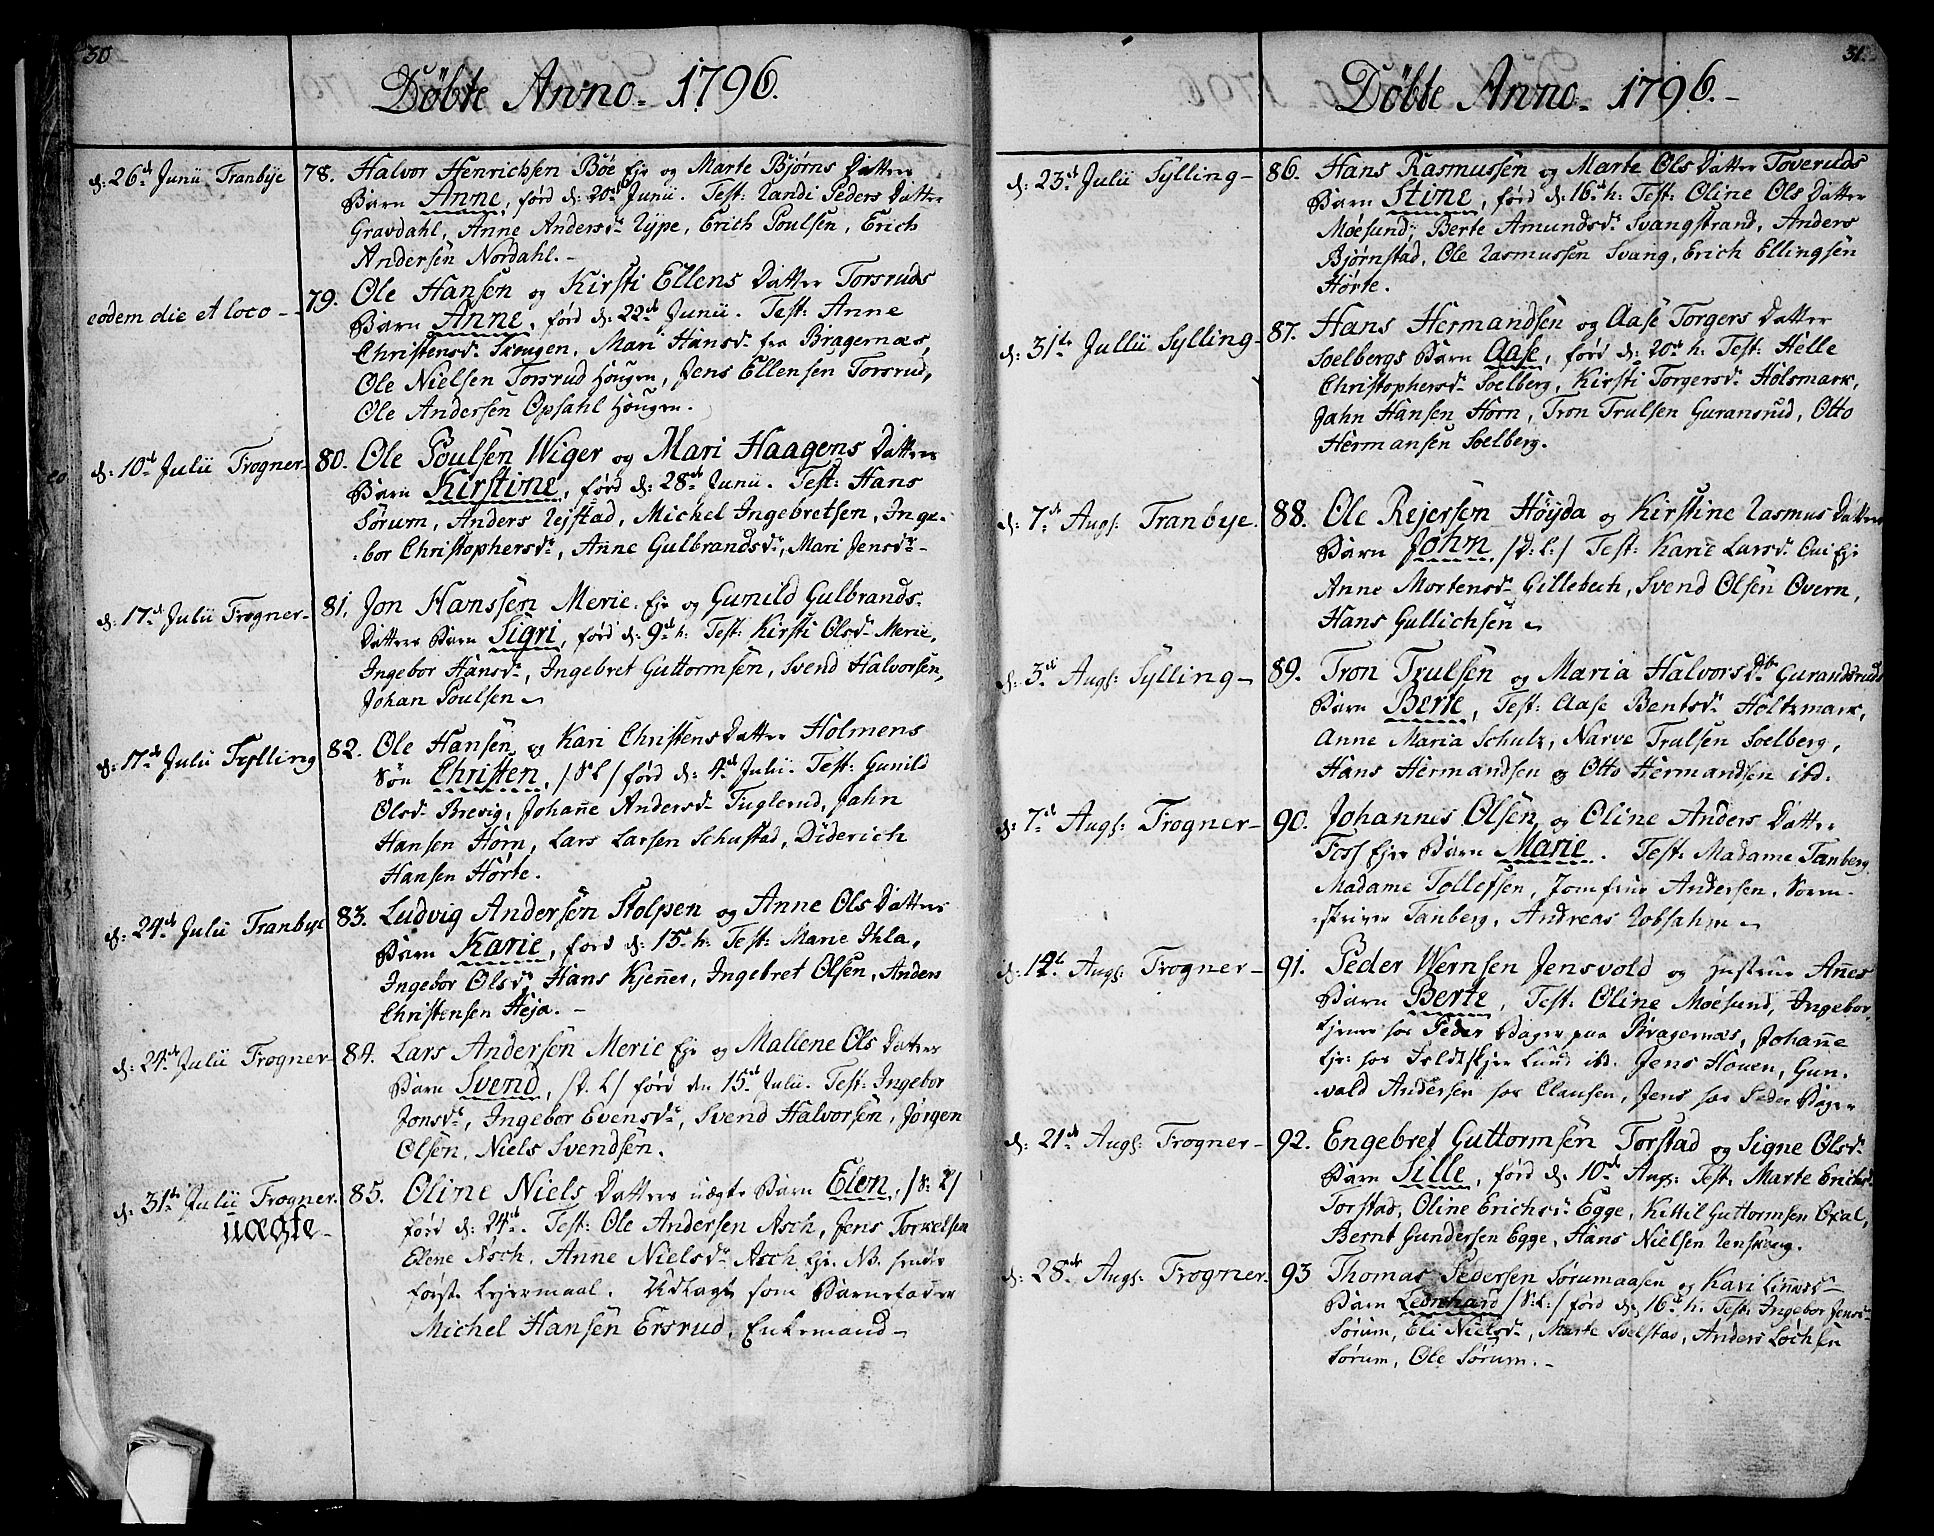 30
Döbte Anno. 1796.
d: 26de Junii Tranbye 78. Halvor Henrichsen Böe Eje og Marte Bjørns Datters
Barn Anne, förd d: 20de Junii. Test: Randi Peders Datter
Gravdahl, Anne Andersdr Rype, Erich Poulsen, Erich
Andersen Nordahl.-
eodem die et loco - 79. Ole Hansen og Kirsti Ellens Datter Torsruds
Barn Anne, förd d: 22de Junii. Test: Anne
Christensdr Skougen, Mari Hansdr fra Bragernæs,
Ole Nielsen Torsrud Hougen, Jens Ellensen Torsrud,
Ole Andersen Opsahl Hougen.
d: 10de Julii Frogner 80. Ole Poulsen Wiger og Mari Haagens Datters
Barn Kirstine, förd d: 28de Junii. Test: Hans
Sörum, Anders Rejstad, Michel Ingebretsen, Inge-
bor Christophersdr, Anne Gulbrandsdr, Mari Jensdr-
d: 17de Julii Frogner 81. Jon Hanssen Merie Eje og Gunild Gulbrands-
Datters Barn Sigri, förd d: 9de h: Test: Kirsti Olsdr Merie,
Ingebor Hansdr, Ingebret Guttormsen, Svend Halvorsen,
Johan Poulsen
d: 17de Julii Sylling 82. Ole Hansen og Kari Christens Datter Holmens
Sön Christen, /S.L/ förd d: 4de Julii. Test: Gunild
Olsdr Brevig, Johanne Andersdr Fuglerud, Jahn
Hansen Horn, Lars Larsen Schustad, Diderich
Hansen Hörte.
d: 24de Julii Tranbye 83. Ludvig Andersen Stolpen og Anne Ols Datters
Barn Karie, förd d: 15de h: Test: Marie Ihla,
Ingebor Olsdr, Hans Kjenner, Ingebret Olsen, Anders
Christensen Heja.-
d: 24de Julii Frogner 84. Lars Andersen Merie Eje og Mallene Ols Datters
Barn Svend, /S.L/ förd den 15de Julii. Test: Ingebor
Jonsdr, Ingebor Evensdr, Svend Halvorsen, Jörgen
Olsen, Niels Svendsen.
d: 31te Julii Frogner 85. Oline Niels Datters uægte Barn Elen, /S: L/
uægte-
förd d: 24de. Test: Ole Andersen Asch, Jens Torkelsen
Elene Asch, Anne Nielsdr Asch Eje. NB. hendes
förste Lejermaal. Udlagt som Barnefader
Michel Hansen Ersrud, Enkemand-
31.
Döbte Anno. 1796.-
d: 23de Julii Sylling- 86. Hans Rasmussen og Marte Ols Datter Toveruds
Barn Stine, förd d: 16de h: Test: Oline Ols Datter
Moesund, Berte Amundsdr Svangstrand, Anders
Bjørnstad, Ole Rasmussen Svang, Erich Ellingsen
Hörte.
d: 31te Julii Sylling- 87. Hans Hermandsen og Aase Torgers Datter
Soelbergs Barn Aase, förd d: 20de h: Test: Helle
Christophersdr Soelberg, Kirsti Torgersdr Holsmark,
Jahn Hansen Horn, Tron Trulsen Guransrud, Otto
Hermansen Soelberg.
d: 7de Augs: Tranbye. 88. Ole Rejersen Höyda og Kirstine Rasmus Datters
Barn John /S:L:/ Test: Karie Larsdr Eje
Anne Mortensdr Gillebech, Svend Olsen Overn,
Hans Gullichsen
d: 3de Augs: Sylling- 89. Tron Trulsen og Maria Halvors Dtr Gurandsruds
Barn Berte, Test: Aase Bentsdr Holtsmark,
Anne Maria Schulz, Narve Trulsen Soelberg,
Hans Hermandsen og Otto Hermandsen ibd.
d: 7de Augs: Frogner- 90. Johannes Olsen og Oline Anders Datter
Foss Ejes Barn Marie. Test: Madame Tanberg
Madame Tollefsen, Jomfrue Andersen, Soren-
skriver Tanberg, Andreas Robsahm
d: 14de Augs: Frogner- 91. Peder Wernsen Jensvold og Hustrue Annes
Barn Berte, Test: Oline Moesund, Ingebor
tjener hos Peder Bager paa Bragernæs, Johanne
tje: hos Feldtskjer Lund ibd. Jens Houen, Gun-
vald Andersen hos Clausen, Jens hos Peder Bager
d: 21de Augs: Frogner- 92. Engebret Guttormsen Torstad og Signe Olsdr
Barn Sille, förd d: 10de Augs: Test: Marte Erichsdr
Torstad, Oline Erichsdr Egge, Kittil Guttormsen Oxal,
Bernt Gundersen Egge, Hans Nielsen Renskoug.
d: 28de Augs: Frogner. 93 Thomas Pedersen Sörumaasen og Kari Linnersdr
Barn Leonhard /S:L:/ förd d: 16de h: Test: Ingebor Jensdr
Sörum, Eli Nielsdr, Marte Svelstad, Anders Lochsen
Sörum, Ole Sörum.-